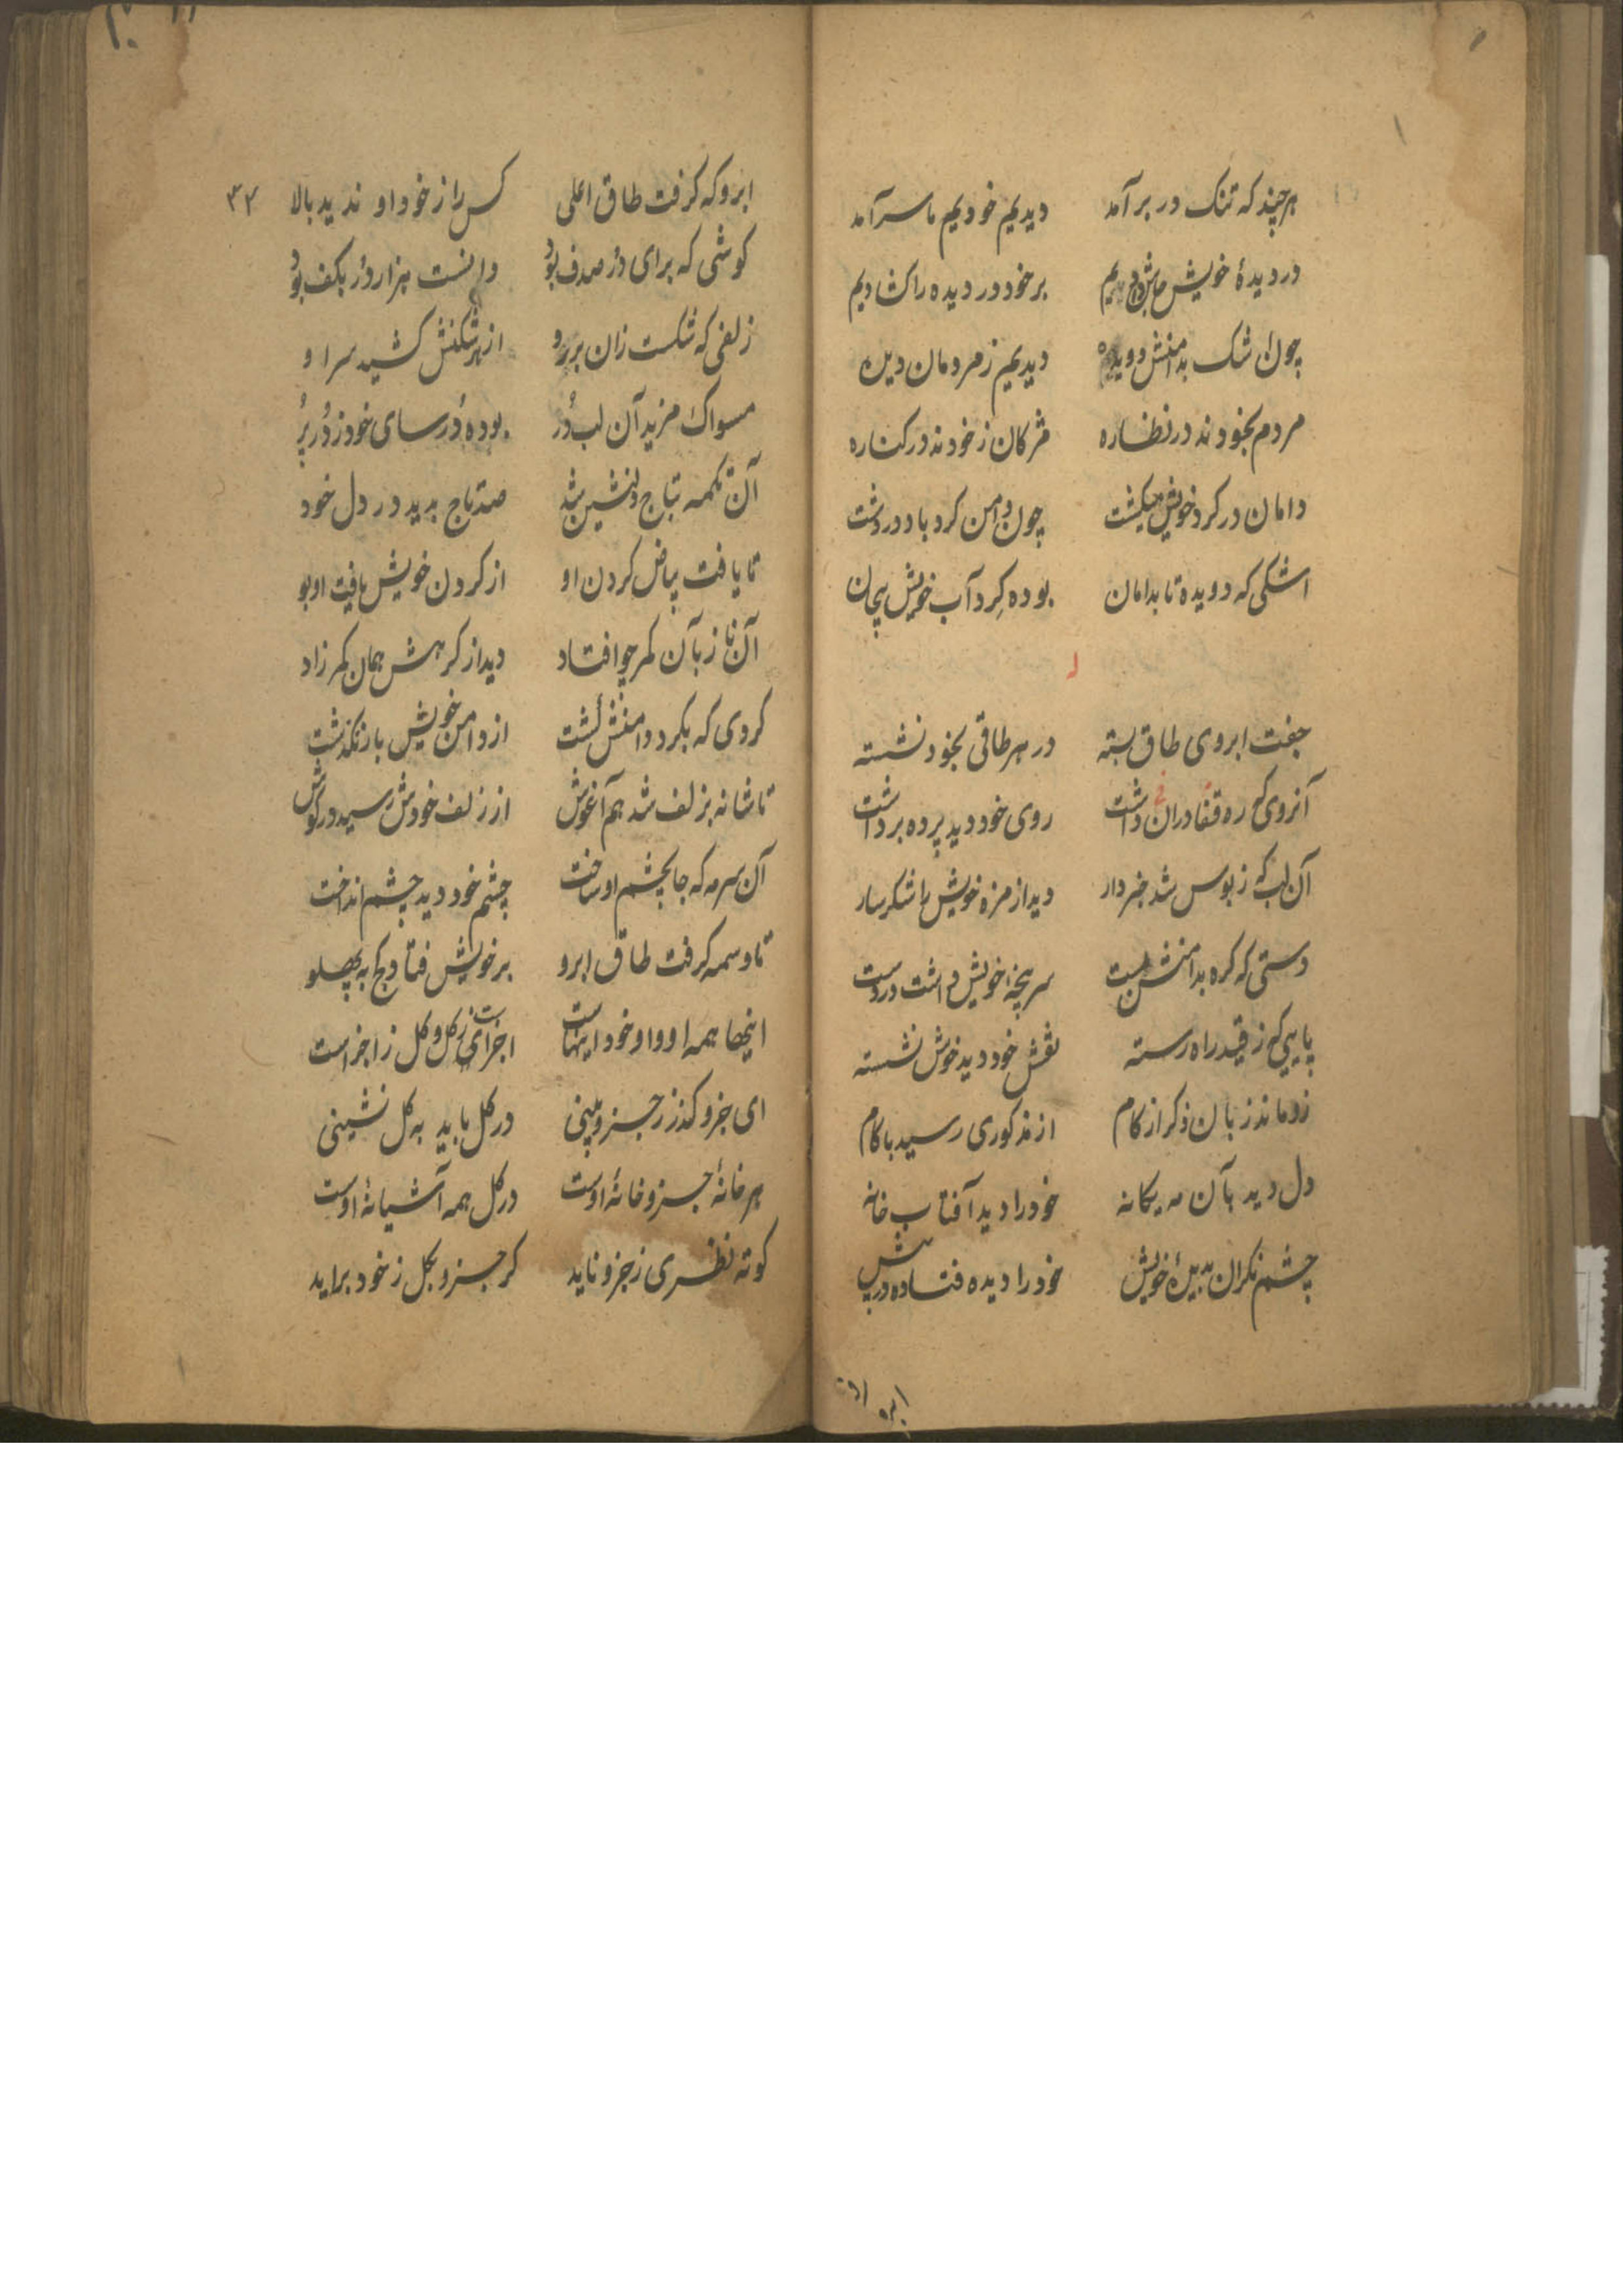 هرچند که تنک در برآمد دیدیم خودیم ما سرآمد
در دیدهٔ خویش بر خود در دیده را کشادیم
چون اشک بدامنش دویده دیدیم ز مردمان دیده
مردم بخودند در نظاره مژکان ز خودند در کناره
دامان در کرد خویش میکشت چون دامن کردباد در دشت
اشکی که دویده تا بدامان بوده کرد آب خویش پیچان
جفت ابروی طاق بسته در هر طاقی بخود نشسته
آنروی که ره قفا دران داشت روی خود دید پرده برداشت
آن لب که ز بوس شد خبردار دید از مزه خویش را شکربار
دستی که کره بدامنش بست سرپنجهٔ خویش داشت در دست
پایی که ز قید راه رسته نقش خود دید خوش نشسته
زو ماند زبان ذکر از کام از مذکوری رسید با کام
دل دید بآن مه یکانه خود را دید آفتاب خانه
چشم نکران بدیدهٔ خویش خود را دیده فتاده در پیش
ابرو که
ابرو که کرفت طاق اعلی کس را ز خود او ندید بالا
۳۳
کوشی که برای در صدف بود دانست هزار در بکف بود
زلفی که شکست زان بر رو از هر شکنش کشید سر او
مسواک مزید آن لب در بوده درسای خود ز در پر
آن تکمه بتاج دلنشین شد صد تاج بدید در دل خود
تا یافت بیاض کردن او از کردن خویش یافت او بو
آن ناز بآن کمر چو افتاد دید از کرهش همان کمر زاد
کردی که بکرد دامنش کشت از دامن خویش باز نکذشت
تا شانه بزلف شد هم آغوش از زلف خودش رسید در کوش
آن سرمه که جا بچشم او ساخت چشم خود دید چشم انداخت
تا وسمه کرفت طاق ابرو بر خویش فتاد کج به پهلو
اینها همه او و او خود اینهاست اجزای ز کل و کل ز اجزاست
ای جزو کذر ز جزوبینی در کل باید به کل نشینی
هر خانهٔ جزو خانهٔ اوست در کل همه آشیانهٔ اوست
کوته نظری ز جزو ناید کر جزو بکل ز خود براید